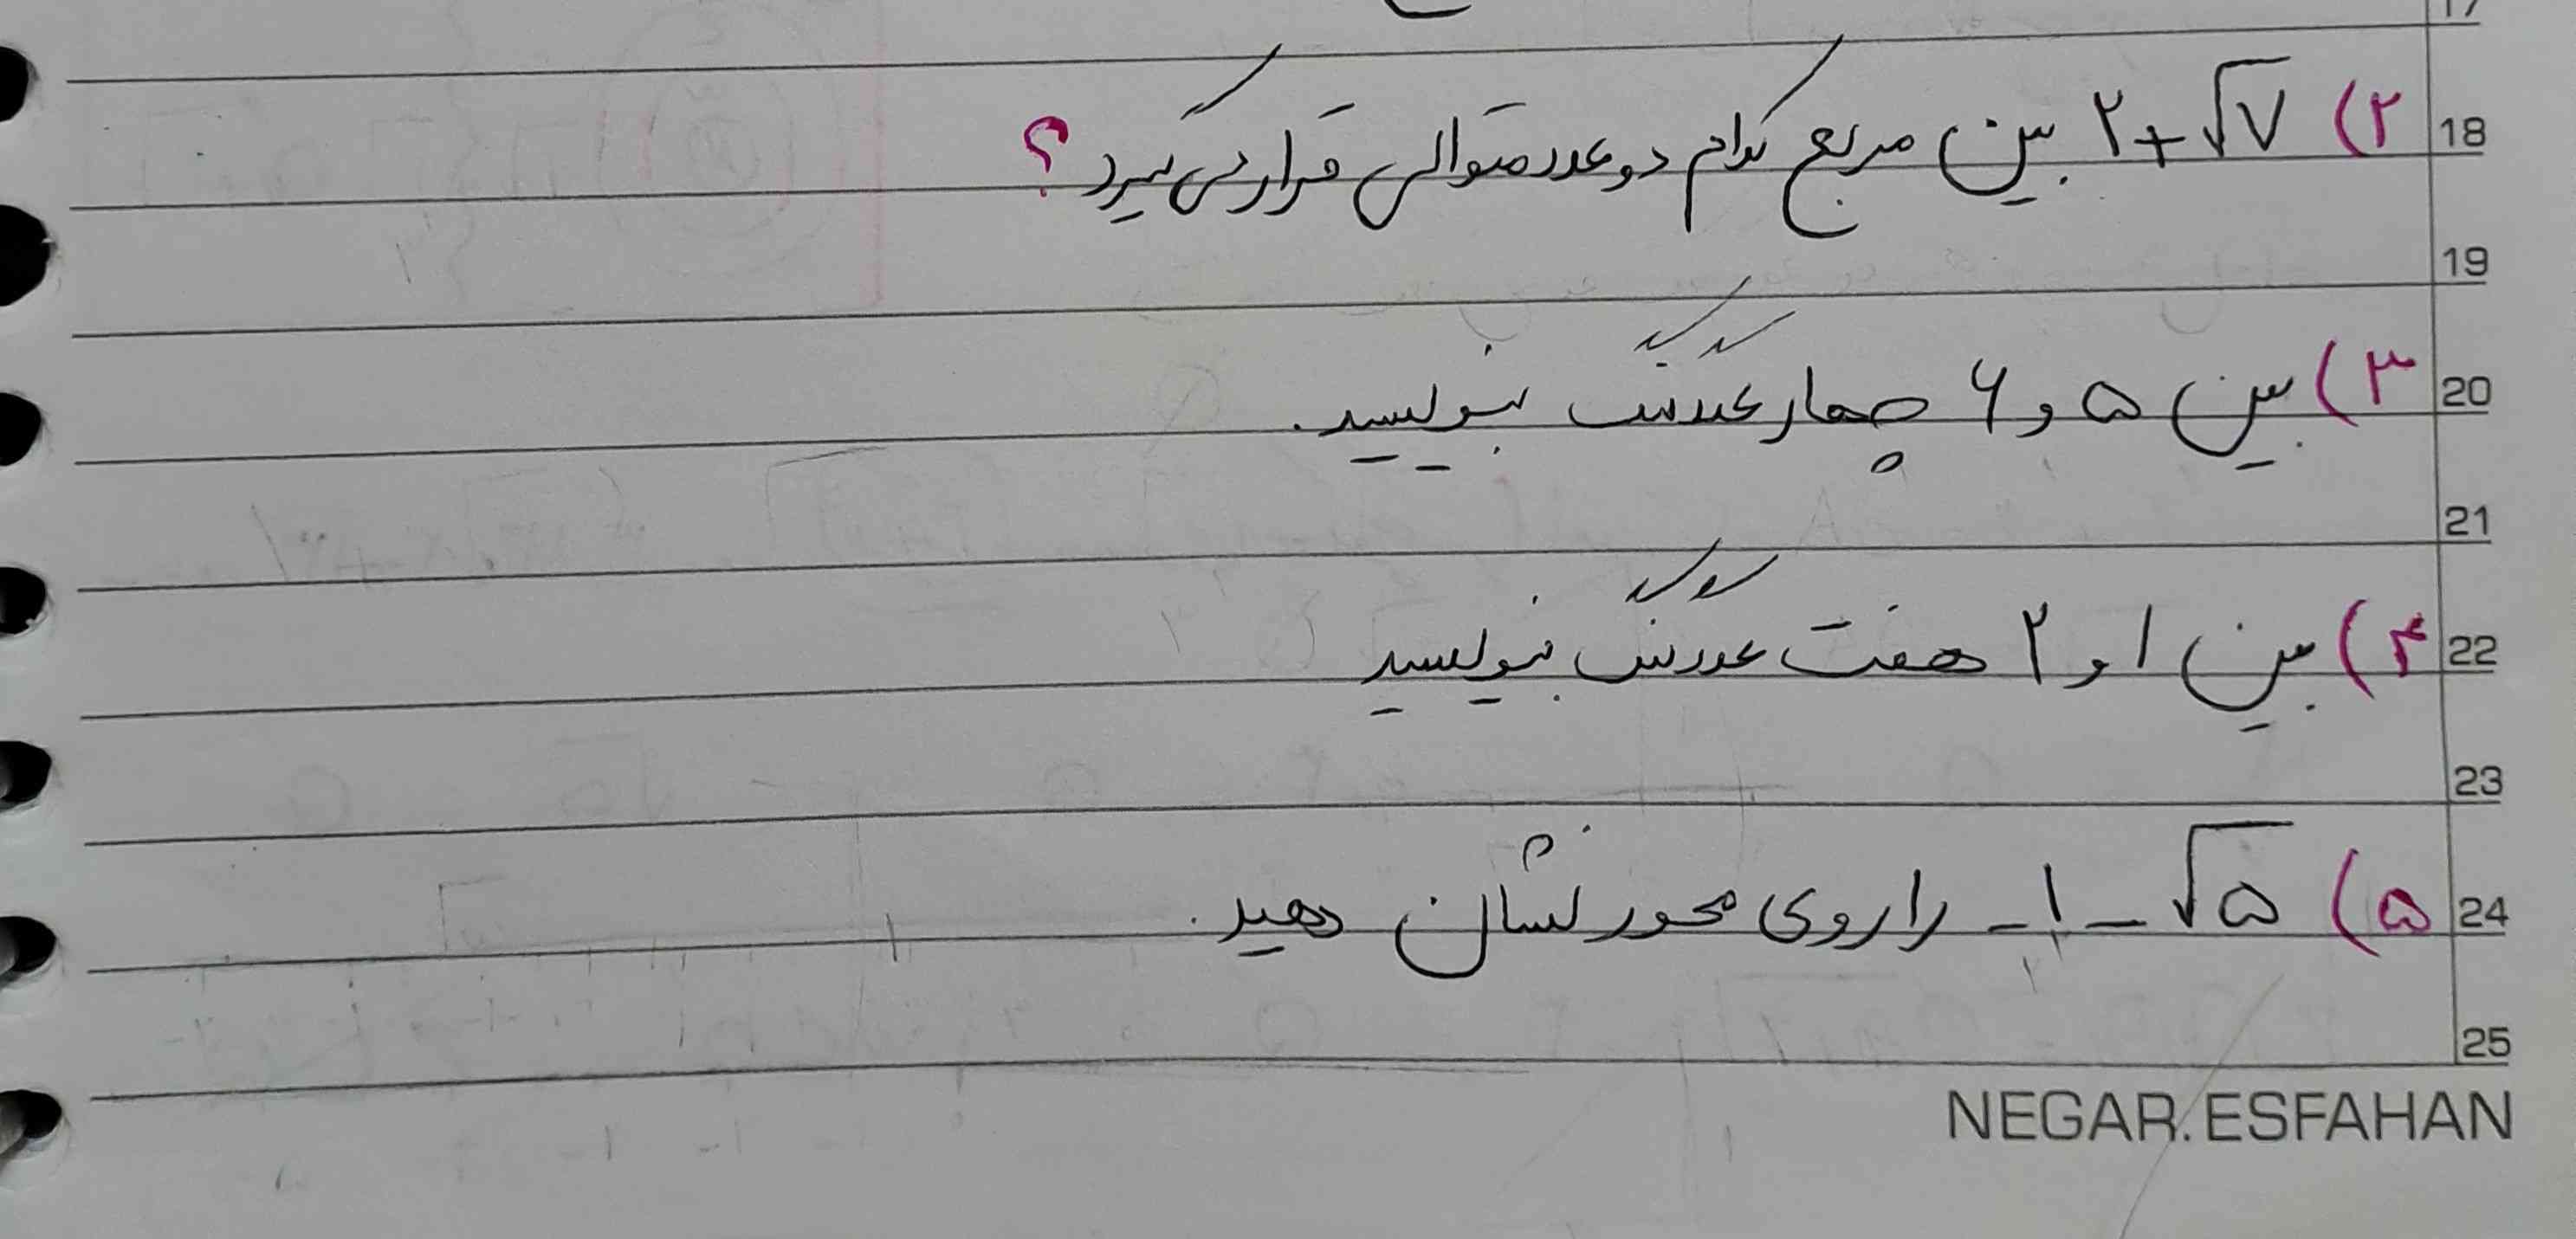 17
18 ۲) ۲+√۷ بین مربع کدام دو عدد متوالی قرار می‌گیرد؟
19
20 ۳) بین ۵ و ۶ چهار عدد گنگ بنویسید.
21
22 ۴) بین ۱ و ۲ هفت عدد گنگ بنویسید
23
24 ۵) √۵ - ۱- را روی محور نشان دهید.
25
NEGAR.ESFAHAN